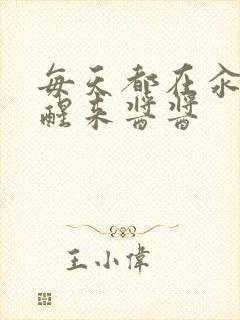 每天都在汆
醒来酱酱
王小伟